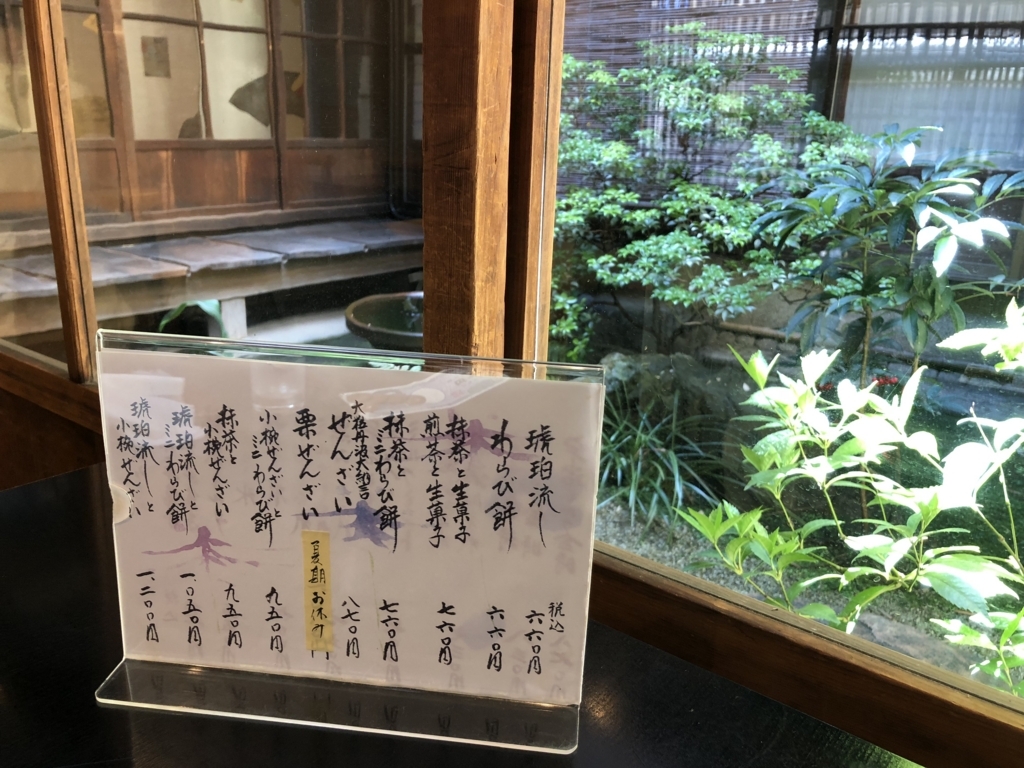 琥珀流し
税込
六六〇円
わらび餅
六六〇円
抹茶と生菓子
煎茶と生菓子
七六〇円
抹茶と
ミニわらび餅
七六〇円
大粒丹波大納言
ぜんざい
八七〇円
栗ぜんざい
夏期お休み
円
小椀ぜんざいと
ミニわらび餅
九五〇円
抹茶と
小椀ぜんざい
九五〇円
琥珀流しと
ミニわらび餅
一、〇五〇円
琥珀流しと
小椀ぜんざい
一、二〇〇円